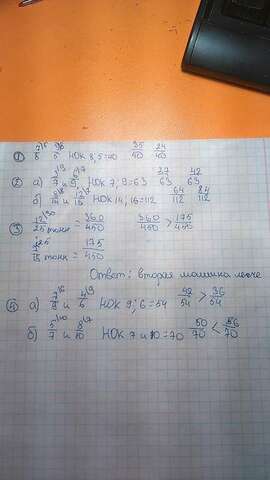 ① 7/8 9/5 НОК 8,5=40 35/40 24/40
② а) 3/7 и 6/9, НОК 7,9=63 27/63 42/63
б) 8/14 и 12/16 НОК 14,16=112 64/112 84/112
③ 12/25 тонн = 360/450 360/450 > 175/450
7/18 тонн = 175/450
Ответ: вторая машина легче
⑤ а) 7/9 и 4/6 НОК 9; 6=54 52/54 > 36/54
б) 5/7 и 8/10 НОК 7 и 10=70 50/70 < 56/70